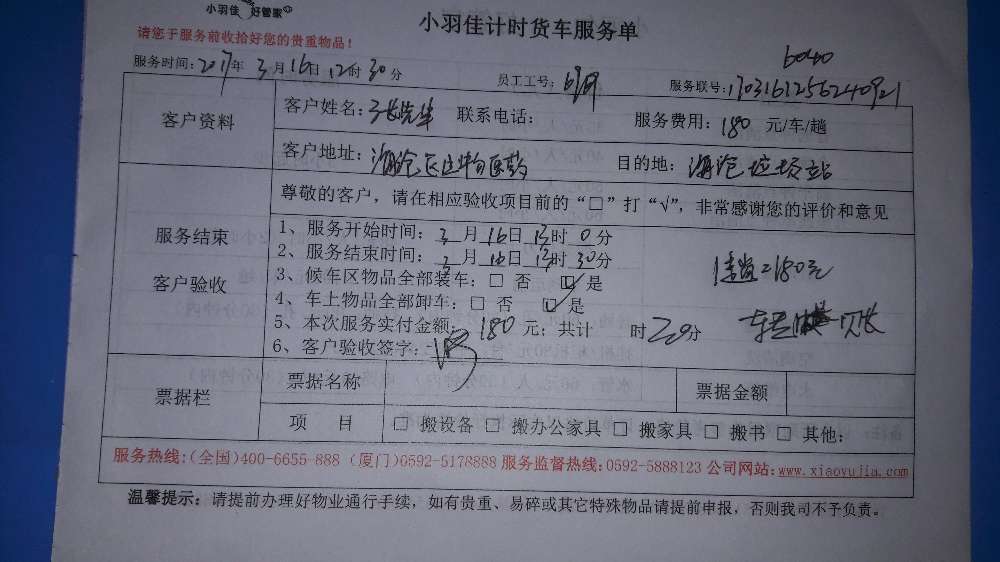 小羽佳 好管家
小羽佳计时货车服务单
请您于服务前收拾好您的贵重物品！
6040
服务时间：2017年3月16日12时30分 员工工号： 服务联号：1703161256240921
客户资料
客户姓名：张先生 联系电话： 服务费用：180元/车/趟
客户地址：海沧区生物医药 目的地：海沧垃圾站
服务结束
客户验收
尊敬的客户，请在相应验收项目前的“□”打“√”，非常感谢您的评价和意见
1、服务开始时间：3月16日13时0分
2、服务结束时间：3月16日13时30分
3、候车区物品全部装车：□ 否 ☑ 是
4、车上物品全部卸车：□ 否 ☑ 是
5、本次服务实付金额：180元；共计 时20分
6、客户验收签字：
180元
票据栏
票据名称 票据金额
项 目 □ 搬设备 □ 搬办公家具 □ 搬家具 □ 搬书 □ 其他：
服务热线:(全国)400-6655-888 (厦门)0592-5178888 服务监督热线:0592-5888123 公司网站:www.xiaoyujia.com
温馨提示：请提前办理好物业通行手续，如有贵重、易碎或其它特殊物品请提前申报，否则我司不予负责。